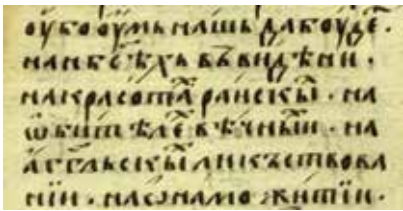 оубо оумь нашь да боуде̑.
на нб҃сѣхь въ видѣни.
на красота̑ раискы̑и. на
ѡбителе̑ вѣчны̑и. на
а҆гг҃льскы̑ ликьствова
нїи. на оу҆намо житїи.